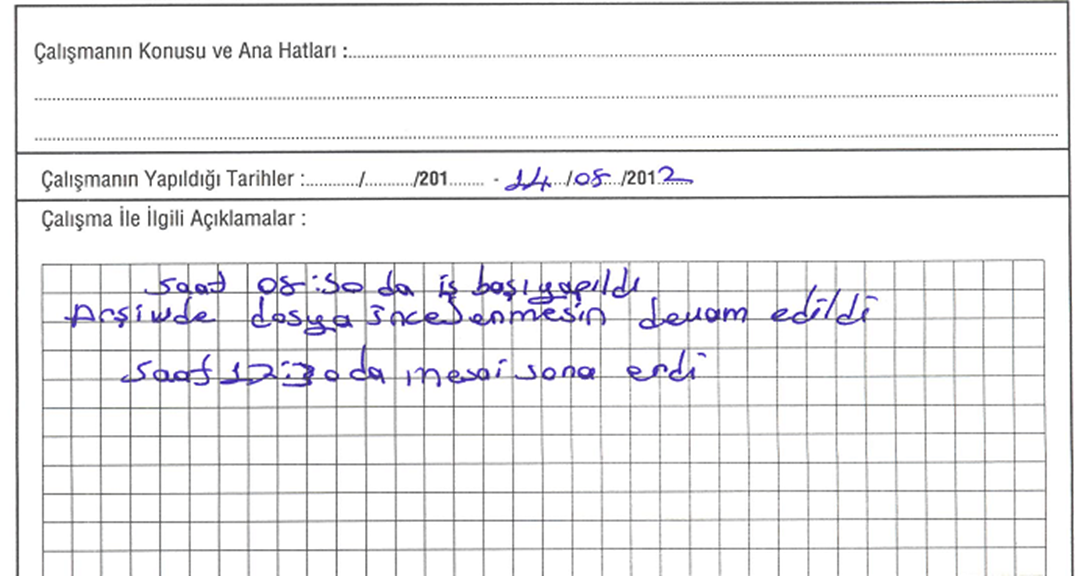 Çalışmanın Konusu ve Ana Hatları :
Çalışmanın Yapıldığı Tarihler : / /201 - 14/08/2012
Çalışma İle İlgili Açıklamalar :
saat 08:30 da iş başı yapıldı
Arşivde dosya incelenmesin devam edildi
saat 17:30 da mesai sona erdi